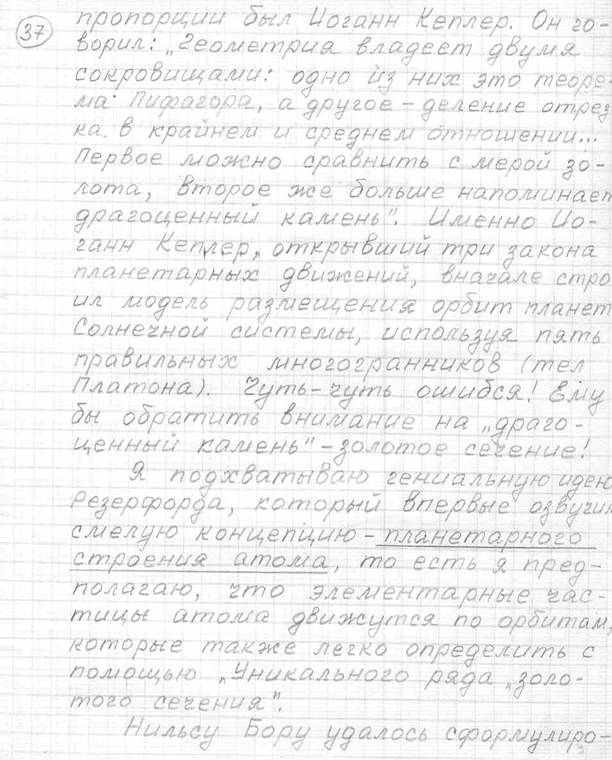 37
пропорции был Иоганн Кеплер. Он го-
ворил: „Геометрия владеет двумя
сокровищами: одно из них это теоре-
ма Пифагора, а другое – деление отрез
ка в крайнем и среднем отношении...
Первое можно сравнить с мерой зо-
лота, второе же больше напоминает
драгоценный камень". Именно Ио-
ганн Кеплер, открывший три закона
планетарных движений, вначале стро
ил модель размещения орбит планет
Солнечной системы, используя пять
правильных многогранников (тел
Платона). Чуть-чуть ошибся! Ему
бы обратить внимание на „драго-
ценный камень" – золотое сечение!
Я подхватываю гениальную идею
Резерфорда, который впервые озвучил
смелую концепцию – планетарного
строения атома, то есть я пред-
полагаю, что элементарные час-
тицы атома движутся по орбитам,
которые также легко определить с
помощью „Уникального ряда „золо-
того сечения".
Нильсу Бору удалось сформулиро-